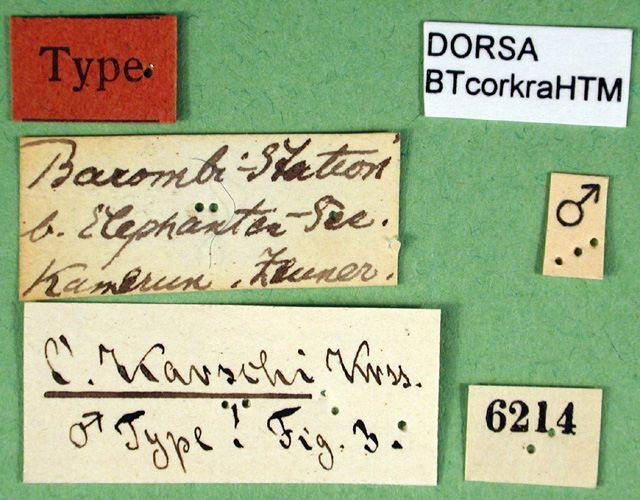 Type.
DORSA
BTcorkraHTM
Barombi-Station
b. Elephanten-See.
Kamerun. Zeuner.
♂
C. Karschi Krss.
♂ Type! Fig. 3.
6214